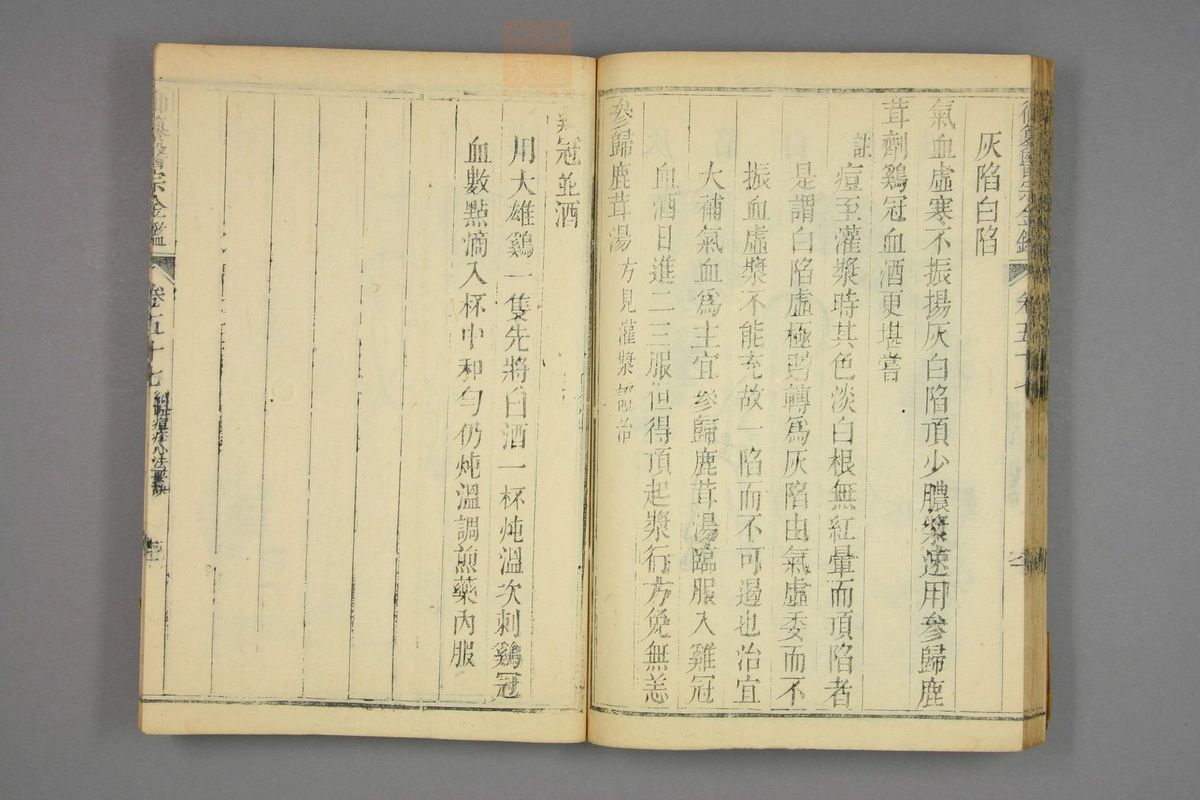 御纂醫宗金鑑 卷五十七
灰陷白陷
氣血虛寒不振揚灰白陷頂少膿漿速用參歸鹿
茸劑鷄冠血酒更堪嘗
註痘至灌漿時其色淡白根無紅暈而頂陷者
是謂白陷虛極則轉爲灰陷由氣虛委而不
振血虛漿不能充故一陷而不可遏也治宜
大補氣血爲主宜參歸鹿茸湯臨服入雞冠
血酒日進二三服但得頂起漿行方免無恙
參歸鹿茸湯 方見灌漿證治
冠並酒
用大雄鷄一隻先將白酒一杯炖溫次刺鷄冠
血數點滴入杯中和勻仍炖溫調煎藥內服
御纂醫宗金鑑 卷五十七 編輯痘疹心法要訣